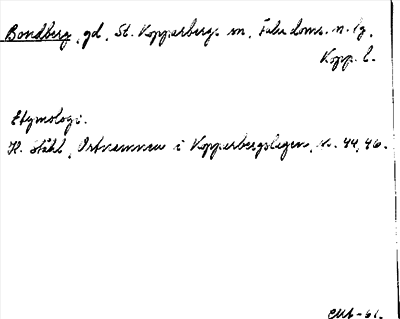 Bondberg, gd, St. Kopparbergs sn, Falu doms. n. tg,
Kopp. l.
Etymologi.
H. Ståhl, Ortnamnen i Kopparbergslagen, s. 44, 46.